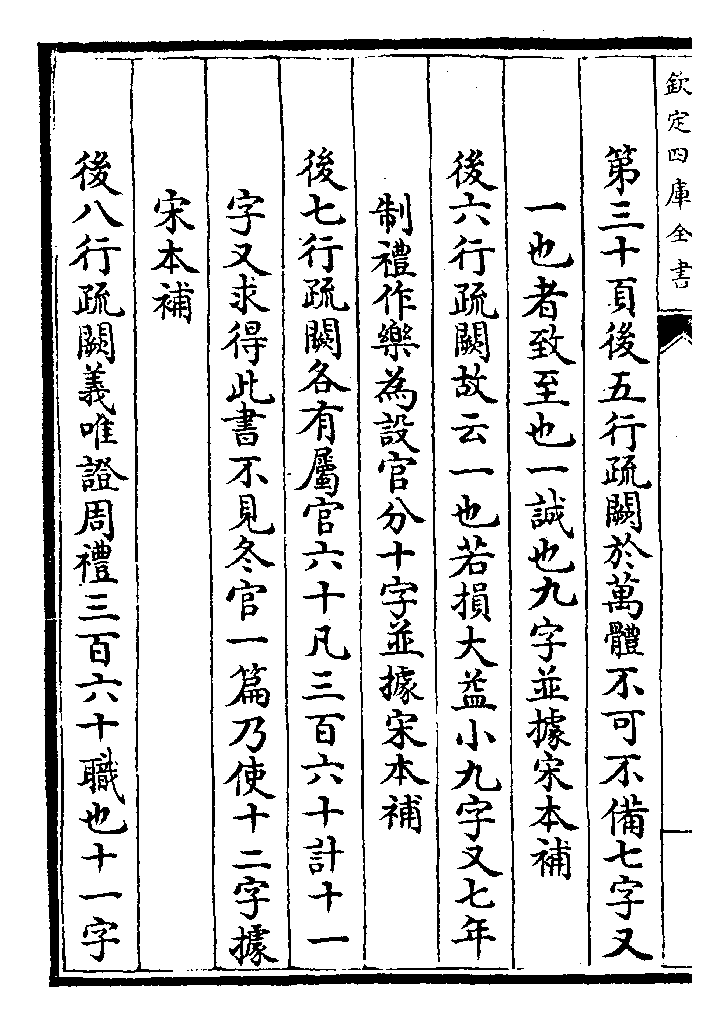 欽定四庫全書
第三十頁後五行疏闕於萬體不可不備七字又
一也者致至也一誠也九字並據宋本補
後六行疏闕故云一也若損大益小九字又七年
制禮作樂為設官分十字並據宋本補
後七行疏闕各有屬官六十凡三百六十計十一
字又求得此書不見冬官一篇乃使十二字據
宋本補
後八行疏闕義唯證周禮三百六十職也十一字